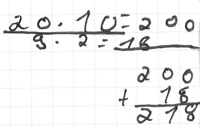 20 · 10 = 200
9 · 2 = 18
200
+ 18
218